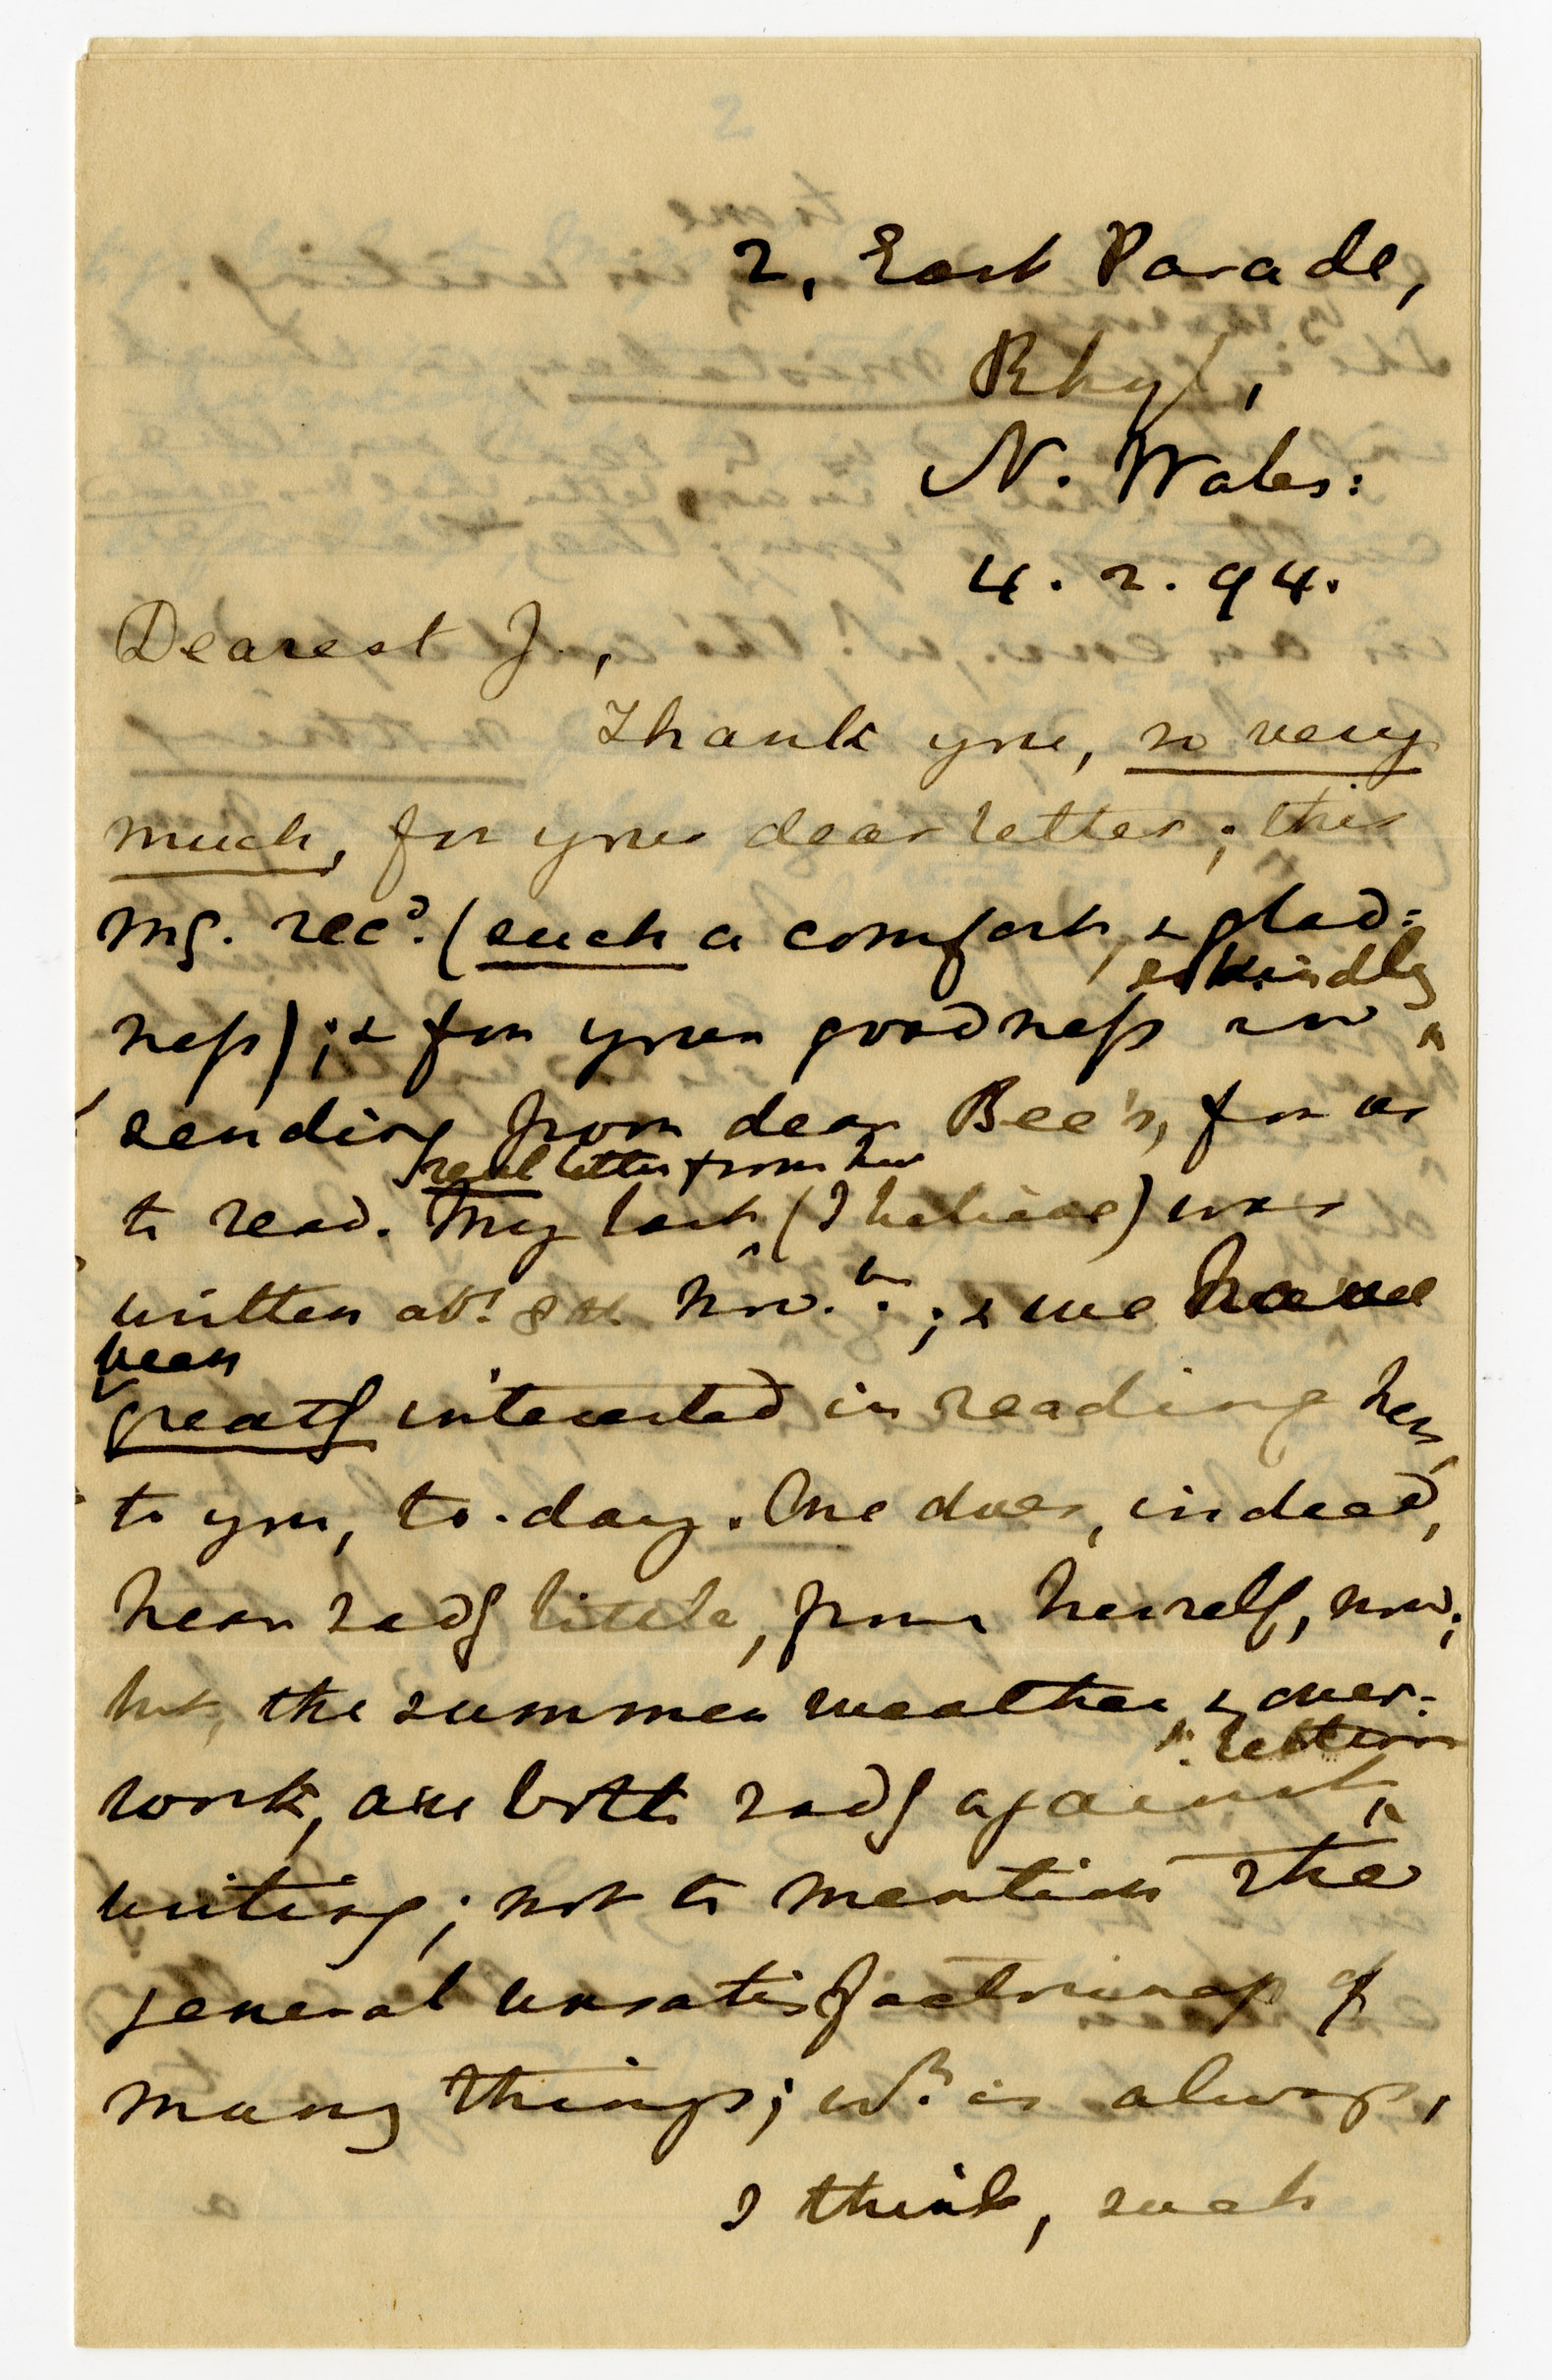 2, East Parade,
Rhyl,
N. Wales:
4. 2. 94.
Dearest J.,
Thank you, so very
much, for your dear letter; this
mg. recd. (such a comfort, & glad=
ness); & for your goodness in
so kindly
sending from dear Bee's, for us
real letter from her
to read. My last (I believe) was
written abt. 8th Nov.br.; & we have
been
greatly interested in reading hers,
to you, to-day. One does, indeed,
hear sadly little, from herself, now;
but, the summer weather, & over=
letter
work, are both sadly against
writing; not to mention the
general unsatisfactoriness of
many things; wh. is always,
I think, such